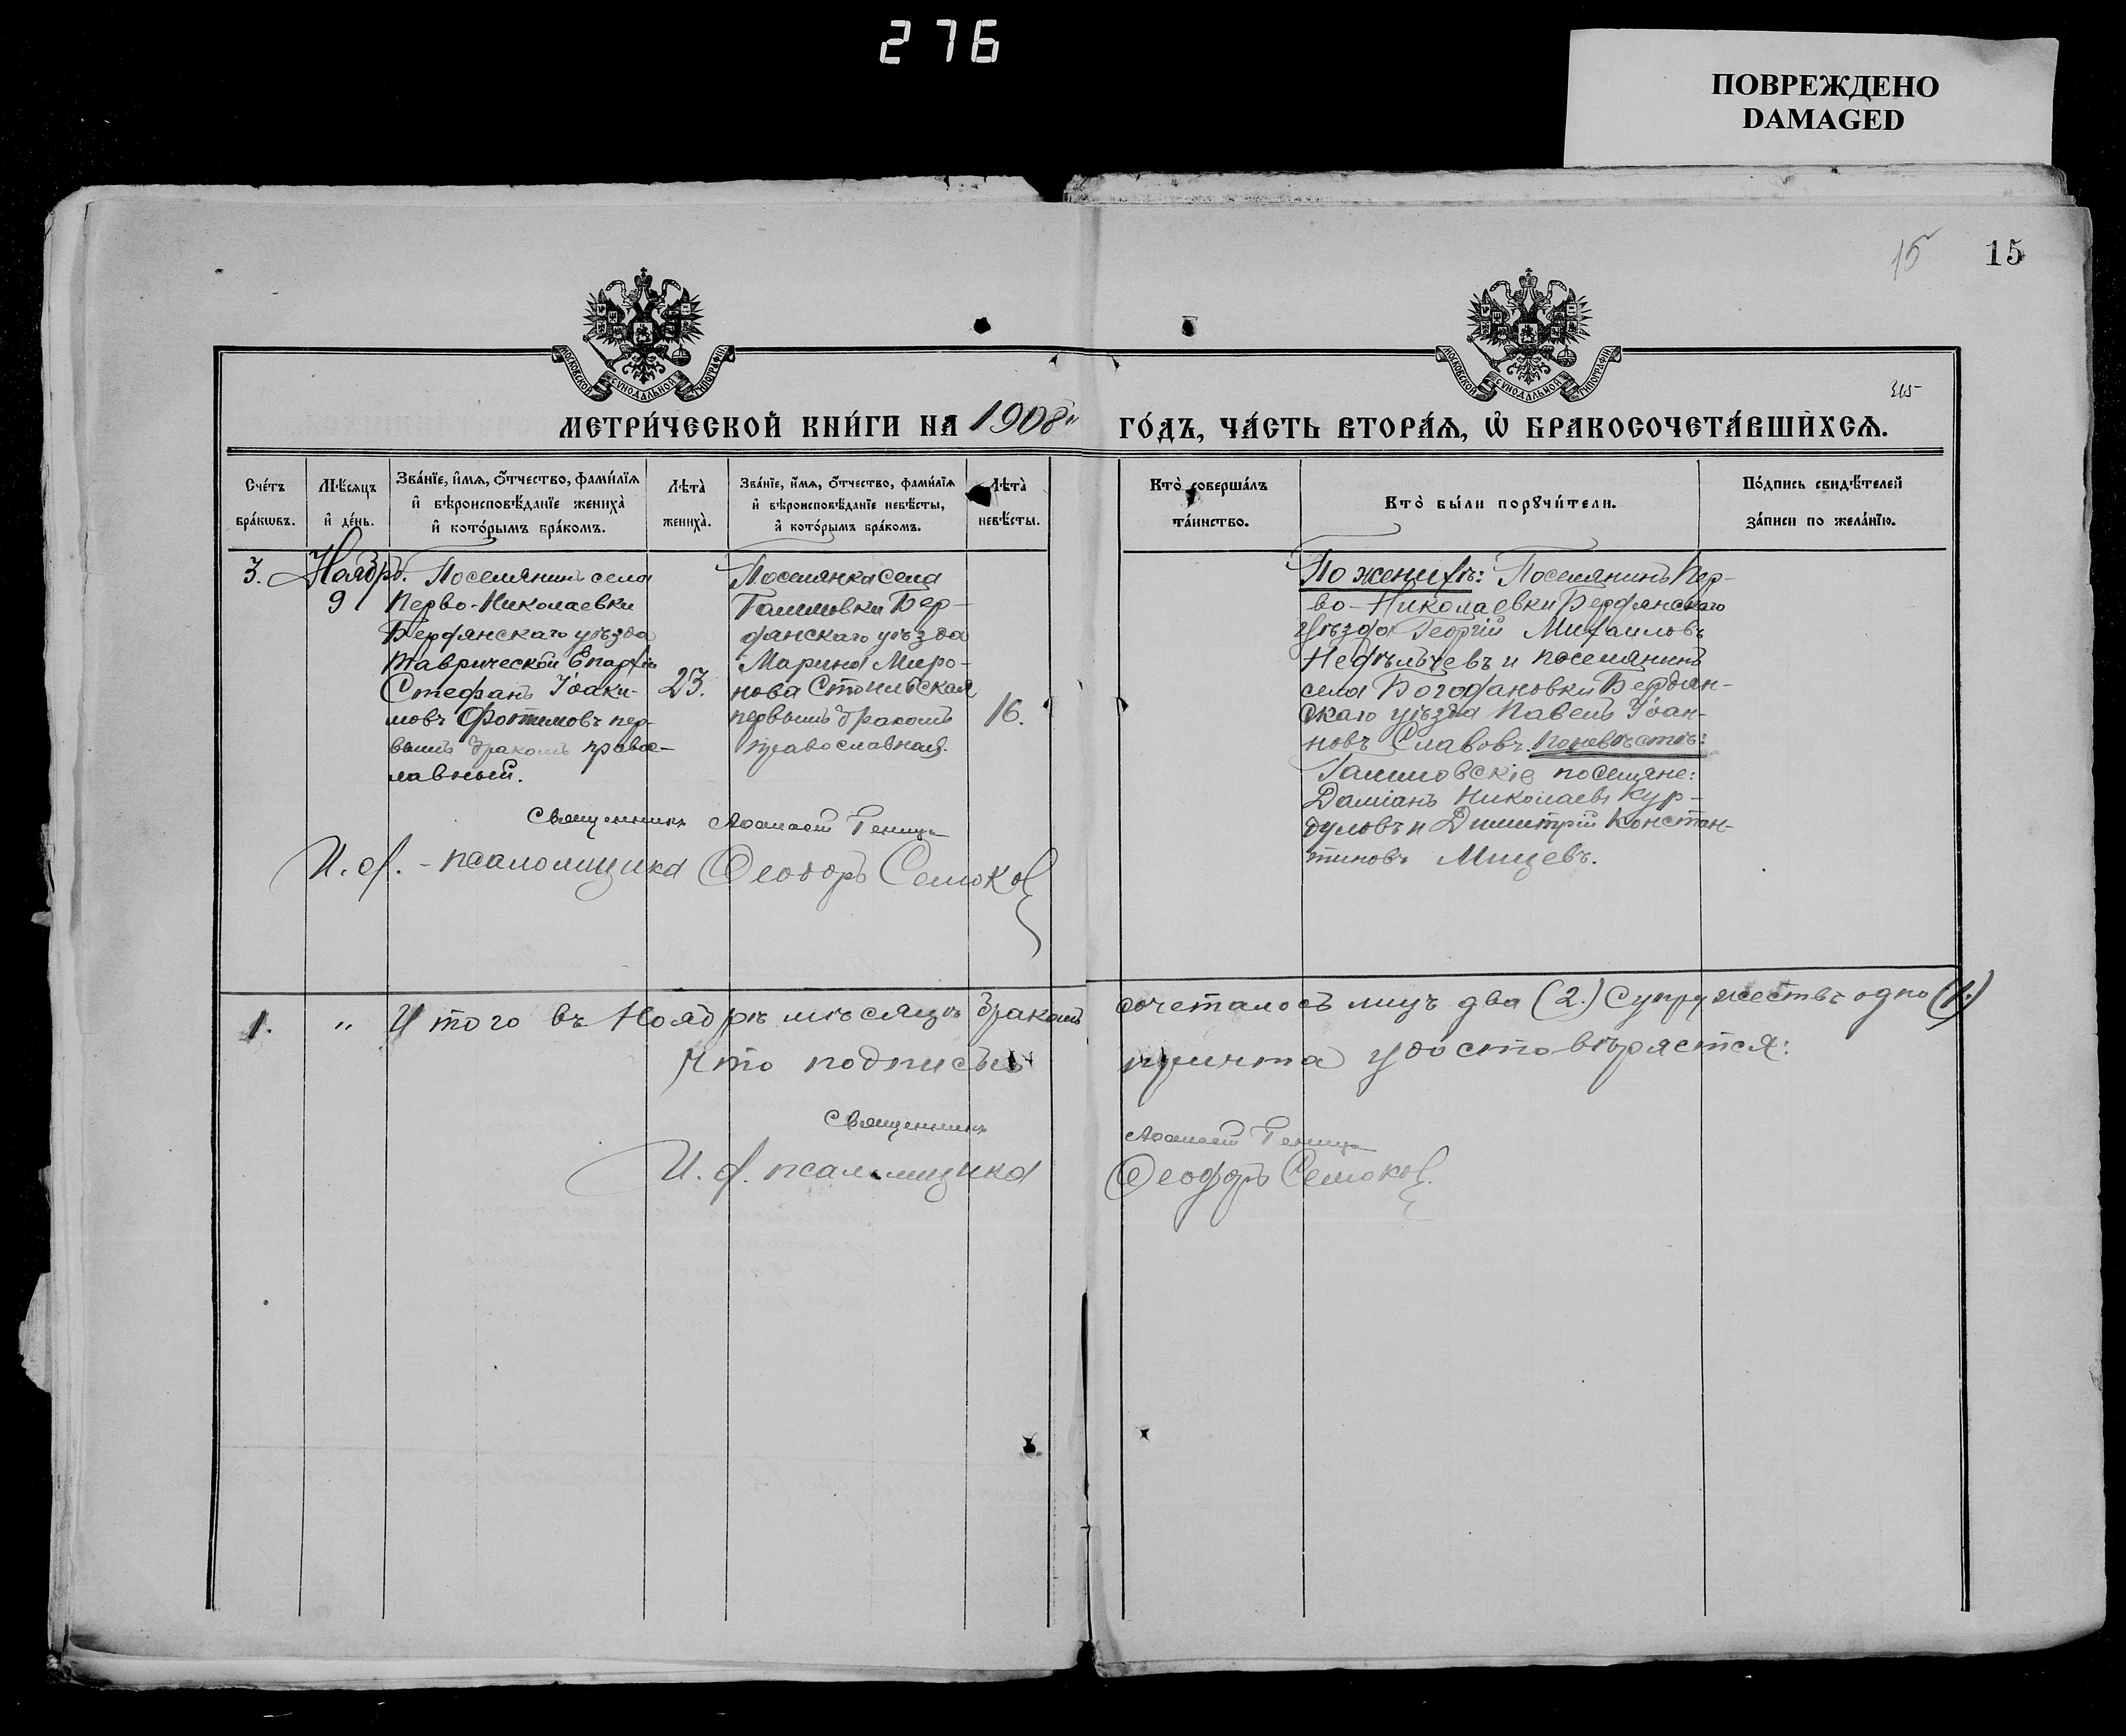 276
ПОВРЕЖДЕНО
DAMAGED
15
15
МОСКОВСКОЙ СѴНОДАЛЬНОЙ ТИПОГРАФІИ
МОСКОВСКОЙ СѴНОДАЛЬНОЙ ТИПОГРАФІИ
МЕТРИ́ЧЕСКОЙ КНИ́ГИ НА 1908 ГО́ДЪ, ЧА́СТЬ ВТОРА́Ѧ, Ѡ҆ БРАКОСОЧЕТА́ВШИХСѦ.
Сче́тъ
бра́кѡвъ.
Мѣ́сѧцъ
и҆ де́нь.
Зва́нїе, и҆́мѧ, ѻ҆́тчество, фами́лїѧ
и҆ вѣроисповѣ́данїе жениха̀
и҆ кото́рымъ бра́комъ.
Лѣта̀
жениха̀.
Зва́нїе, и҆́мѧ, ѻ҆́тчество, фами́лїѧ
и҆ вѣроисповѣ́данїе невѣ́сты,
и҆ кото́рымъ бра́комъ.
Лѣта̀
невѣ́сты.
Кто̀ соверша́лъ
та́инство.
Кто̀ бы́ли порꙋчи́тели.
По́дпись свидѣ́телей
за́писи по жела́нїю.
3.
Ноябрь.
9
Поселянинъ села
Перво-Николаевки
Бердянскаго уѣзда
Таврической Епархіи
Стефанъ Іоаки-
мовъ Фотимовъ пер-
вымъ бракомъ правос-
лавный.
23.
Поселянка села
Гамовки Бер-
дянскаго уѣзда
Марина Миро-
нова Стоильская
первымъ бракомъ
православная.
16.
По женихѣ: Поселянинъ Пер-
во-Николаевки Бердянскаго
уѣзда Георгій Михаиловъ
Недѣльчевъ и поселянинъ
села Богодановки Бердян-
скаго уѣзда Павелъ Іоан-
новъ Славовъ. По невѣстѣ:
поселяне:
Даміанъ Николаевъ Кур-
дуловъ и Димитрій Констан-
тиновъ Мицевъ.
Священникъ
И. д. - псаломщика Ѳеодоръ
1. " Итого въ Ноябрѣ мѣсяцѣ бракомъ сочеталось лицъ два (2.) Супружествъ одно (1.)
Что подписью причта удостовѣряется:
Священникъ
И. д. псаломщика Ѳеодоръ